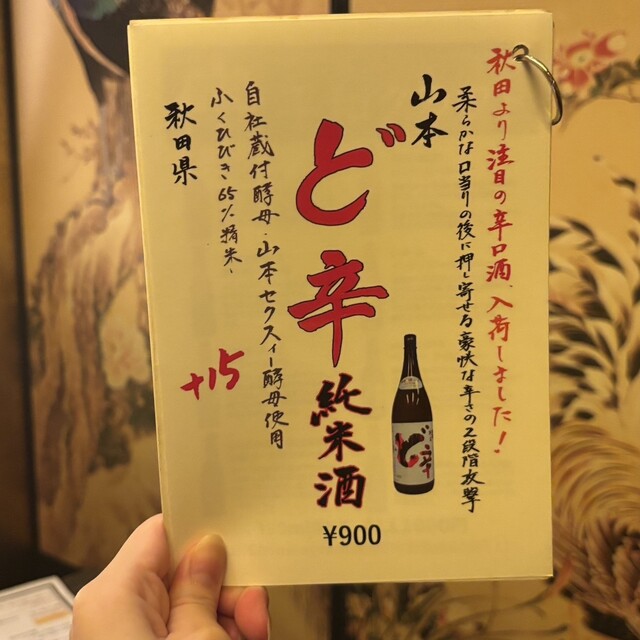 秋田より注目の辛口酒、入荷しました！
柔らかな口当りの後に押し寄せる豪快な辛さの2段階攻撃
山本
ど辛
純米酒
¥900
ど辛
自社蔵付酵母・山本セクスィー酵母使用
ふくひびき65%精米、
+15
秋田県